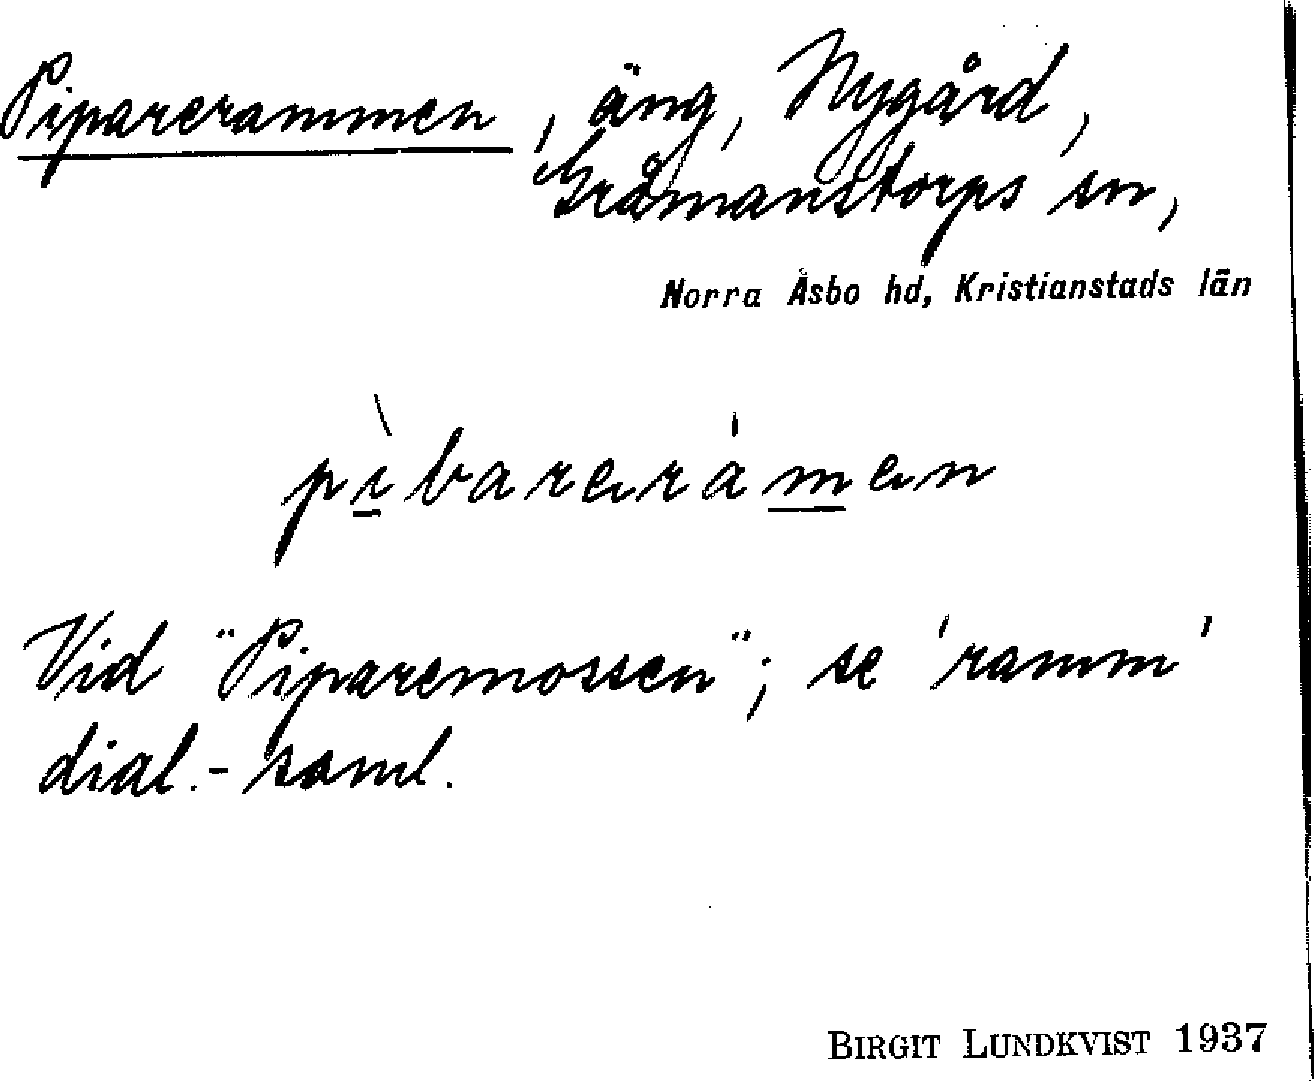 Piparerammen, äng, Nygård,
Gråmanstorps sn,
Norra Åsbo hd, Kristianstads län
pìbarerámen
Vid "Piparemossen"; se 'ramm'
dial.-saml.
BIRGIT LUNDKVIST 1937